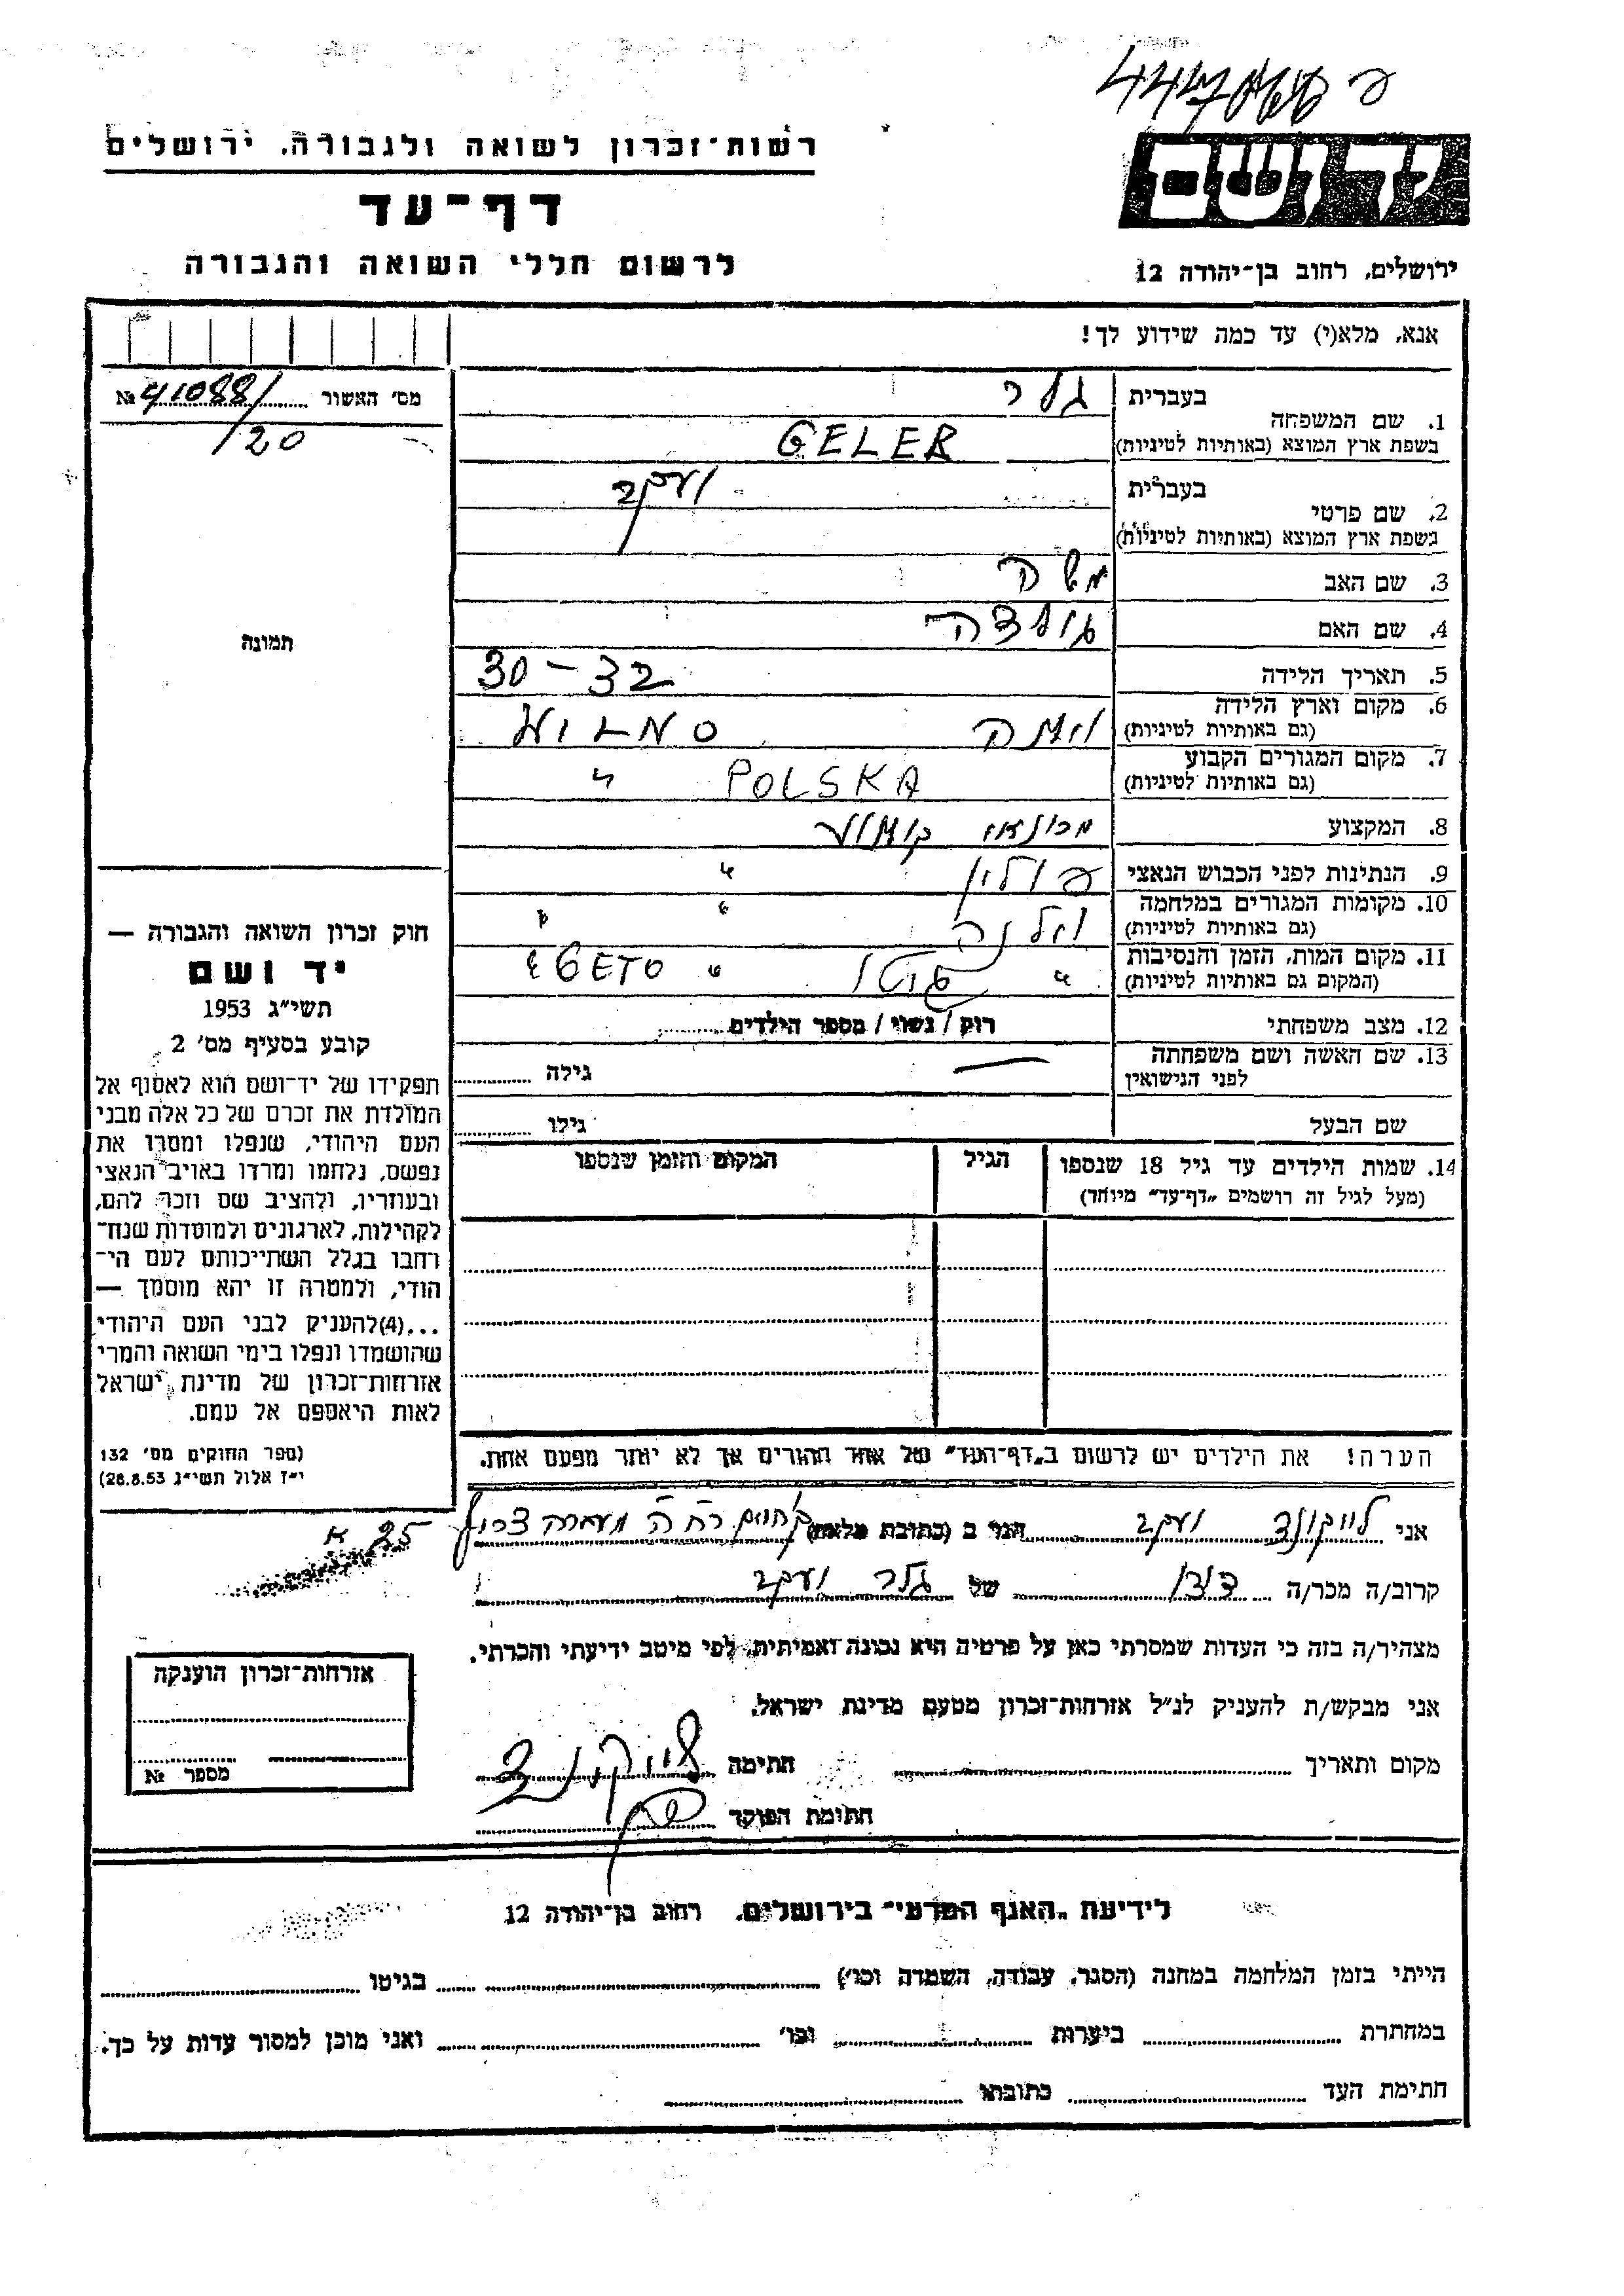 רשות-זכרון לשואה ולגבורה, ירושלים
דף-עד
לרשום חללי השואה והגבורה
יד ושם
ירושלים, רחוב בן-יהודה 12
אנא, מלא(י) עד כמה שידוע לך!
מס' האשור № 41088/
/20
1. שם המשפחה בעברית גלר
בשפת ארץ המוצא (באותיות לטיניות) GELER
2. שם פרטי בעברית יעקב
בשפת ארץ המוצא (באותיות לטיניות)
3. שם האב משה
4. שם האם גולדה
5. תאריך הלידה 30-32
6. מקום וארץ הלידה
(גם באותיות לטיניות) וילנה WILNO
7. מקום המגורים הקבוע
(גם באותיות לטיניות) POLSKA "
8. המקצוע
9. הנתינות לפני הכבוש הנאצי פולין "
10. מקומות המגורים במלחמה
(גם באותיות לטיניות) וילנה " "
11. מקום המות, הזמן והנסיבות
(המקום גם באותיות לטיניות) " גיטו " GETO "
12. מצב משפחתי רוק / נשוי / מספר הילדים
13. שם האשה ושם משפחתה
לפני הנישואין — גילה
שם הבעל גילו
14. שמות הילדים עד גיל 18 שנספו
(מעל לגיל זה רושמים "דף-עד" מיוחד)
הגיל
המקום והזמן שנספו
הערה! את הילדים יש לרשום ב"דף-העד" של אחד ההורים אך לא יותר מפעם אחת.
תמונה
חוק זכרון השואה והגבורה —
יד ושם
תשי"ג 1953
קובע בסעיף מס' 2
תפקידו של יד-ושם הוא לאסוף אל
המולדת את זכרם של כל אלה מבני
העם היהודי, שנפלו ומסרו את
נפשם, נלחמו ומרדו באויב הנאצי
ובעוזריו, ולהציב שם וזכר להם,
לקהילות, לארגונים ולמוסדות שנח-
רחבו בגלל השתייכותם לעם הי-
הודי, ולמטרה זו יהא מוסמך —
...(4)להעניק לבני העם היהודי
שהושמדו ונפלו בימי השואה והמרי
אזרחות-זכרון של מדינת ישראל
לאות היאספם אל עמם.
(ספר החוקים מס' 132
י"ז אלול תשי"ג 28.8.53)
אני יעקב הגר ב (כתובת מלאה)
קרוב/ה מכר/ה דודו של גלר יעקב
מצהיר/ה בזה כי העדות שמסרתי כאן על פרטיה היא נכונה ואמיתית, לפי מיטב ידיעתי והכרתי.
אני מבקש/ת להעניק לנ"ל אזרחות-זכרון מטעם מדינת ישראל.
מקום ותאריך חתימה
חתימת הפוקד
אזרחות-זכרון הוענקה
מספר №
לידיעת "האגף המדעי" בירושלים, רחוב בן-יהודה 12
הייתי בזמן המלחמה במחנה (הסגר, עבודה, השמדה וכו') בגיטו
במחתרת ביערות וכו' ואני מוכן למסור עדות על כך.
חתימת העד כתובתו